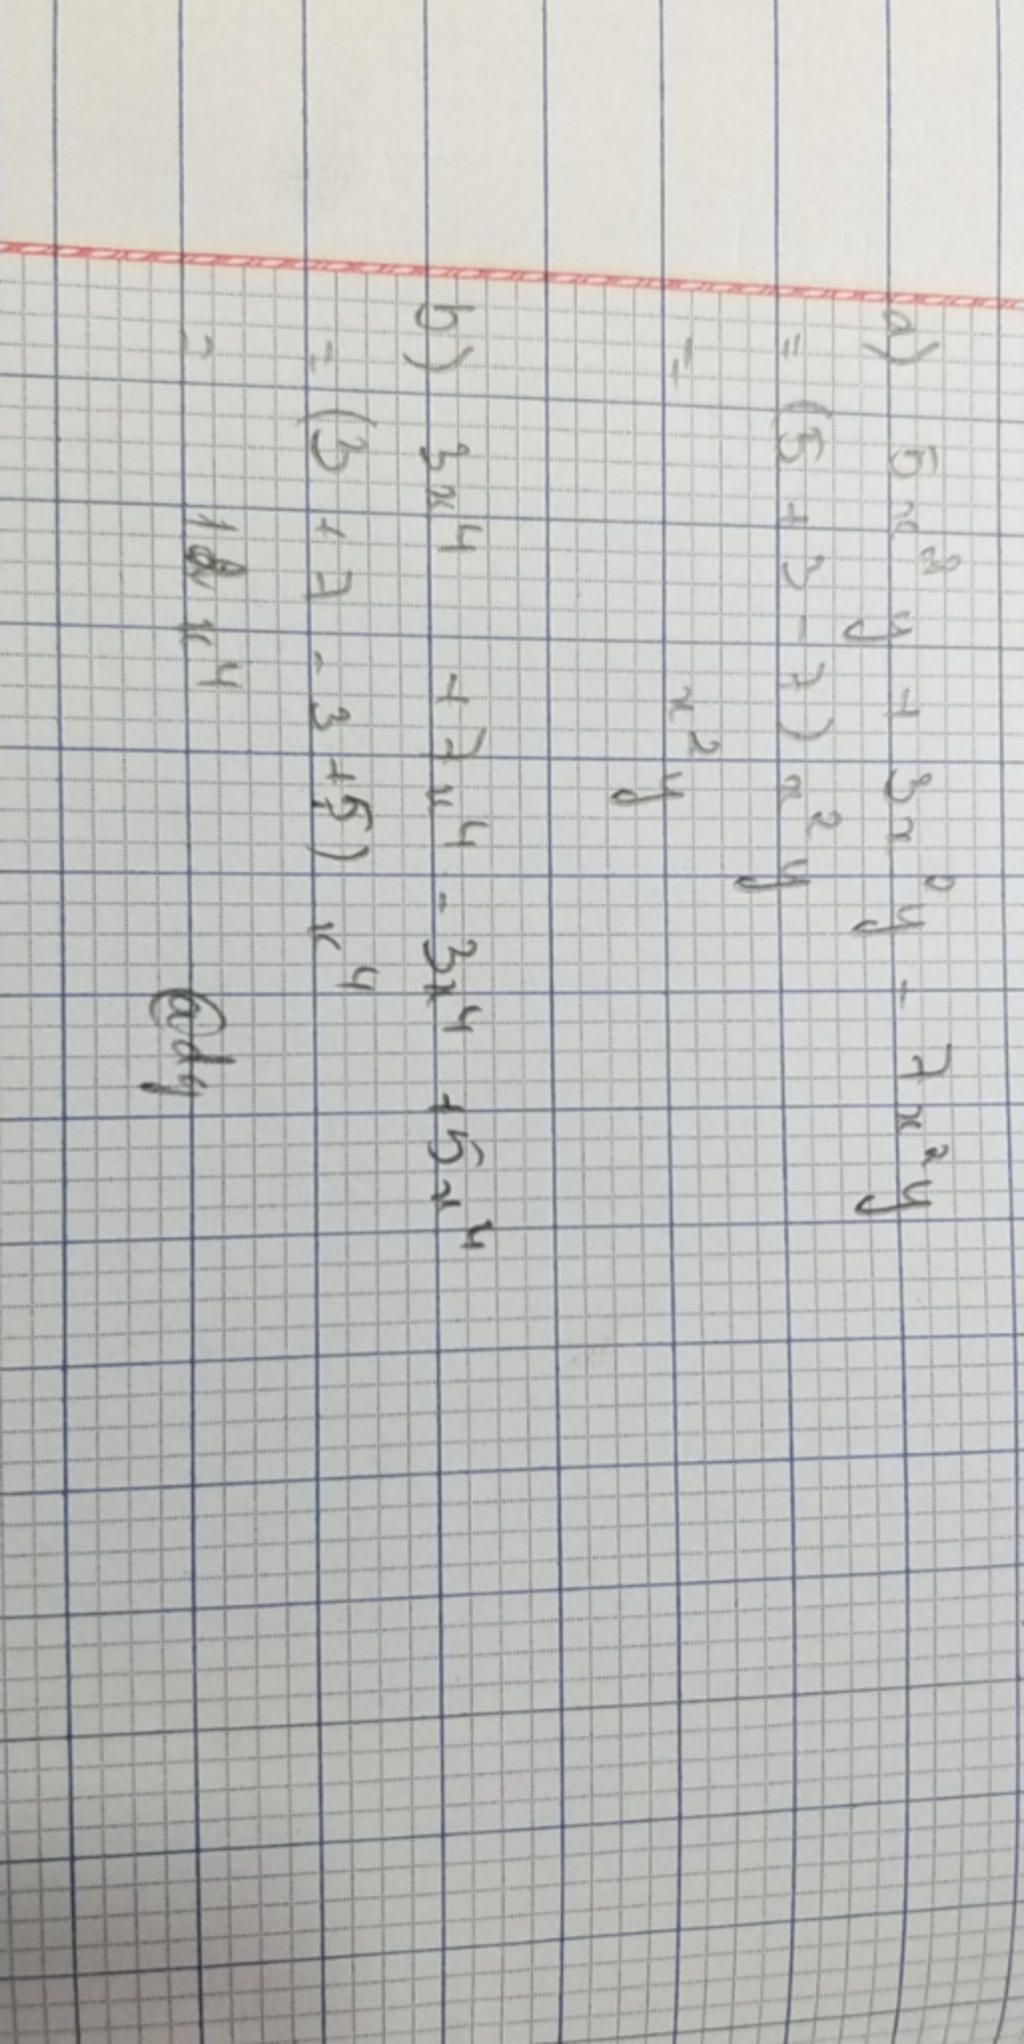 a) 5x²y + 3x²y - 7x²y
= (5 + 3 - 7) x²y
= x²y
b) 3x⁴ + 7x⁴ - 3x⁴ + 5x⁴
= (3 + 7 - 3 + 5) x⁴
= 12x⁴
@dy